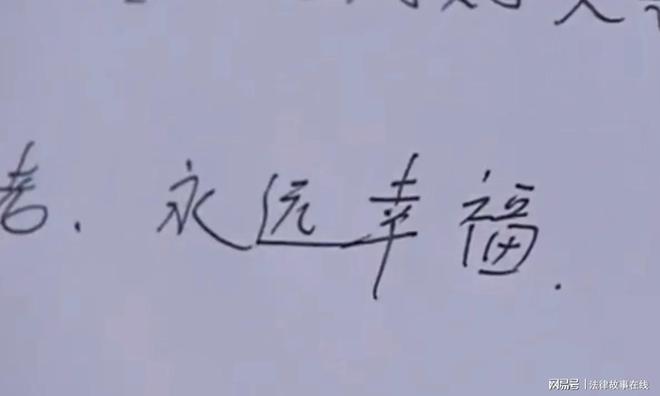 永远幸福.
网易号 | 法律故事在线